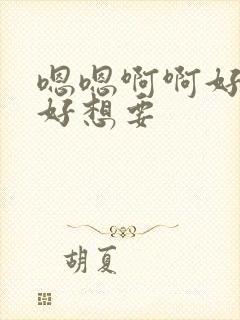 嗯嗯啊啊好
好想要
胡夏